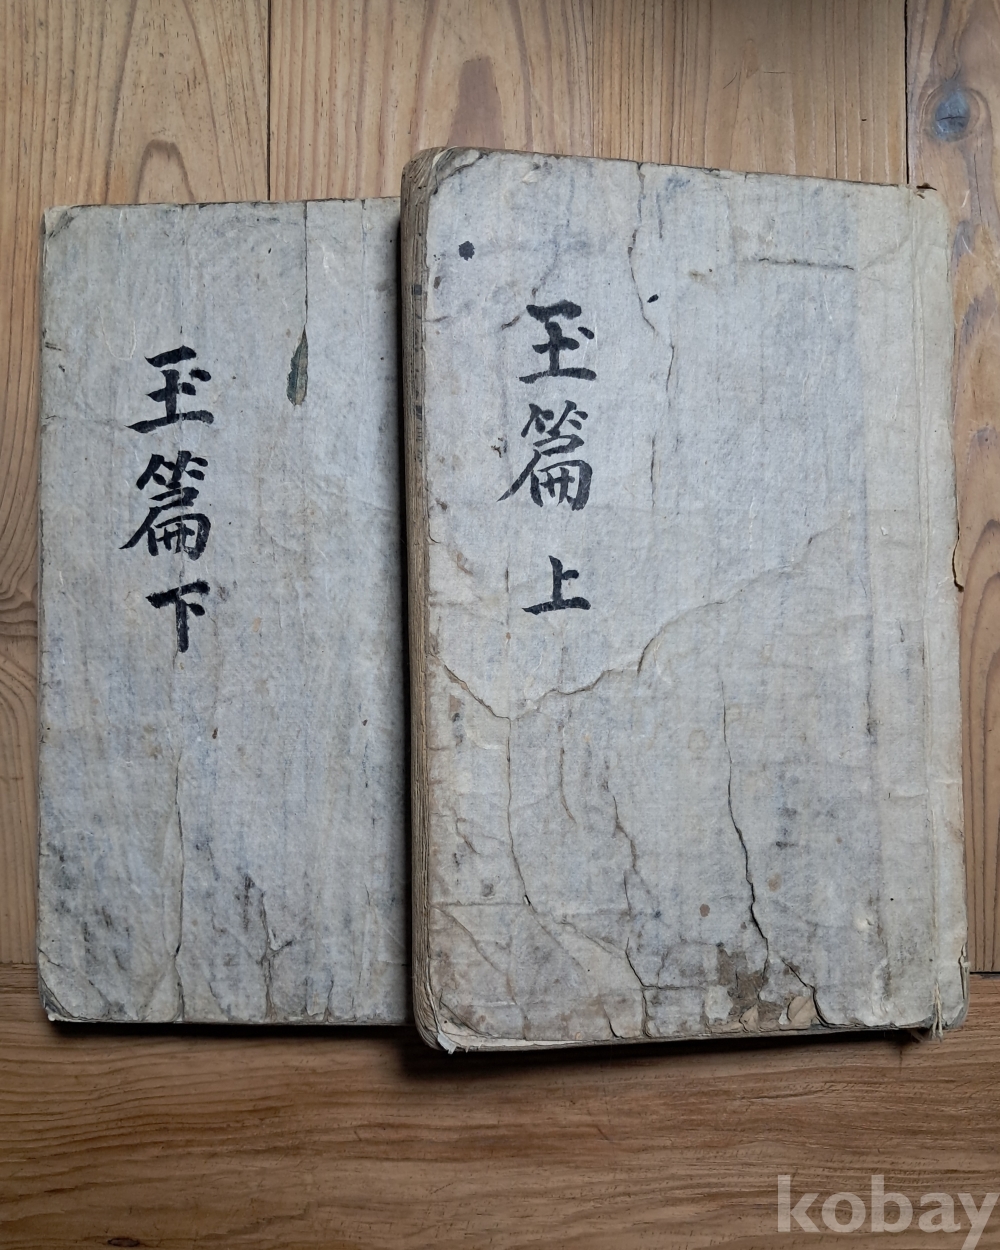 玉篇下
玉篇上
kobay